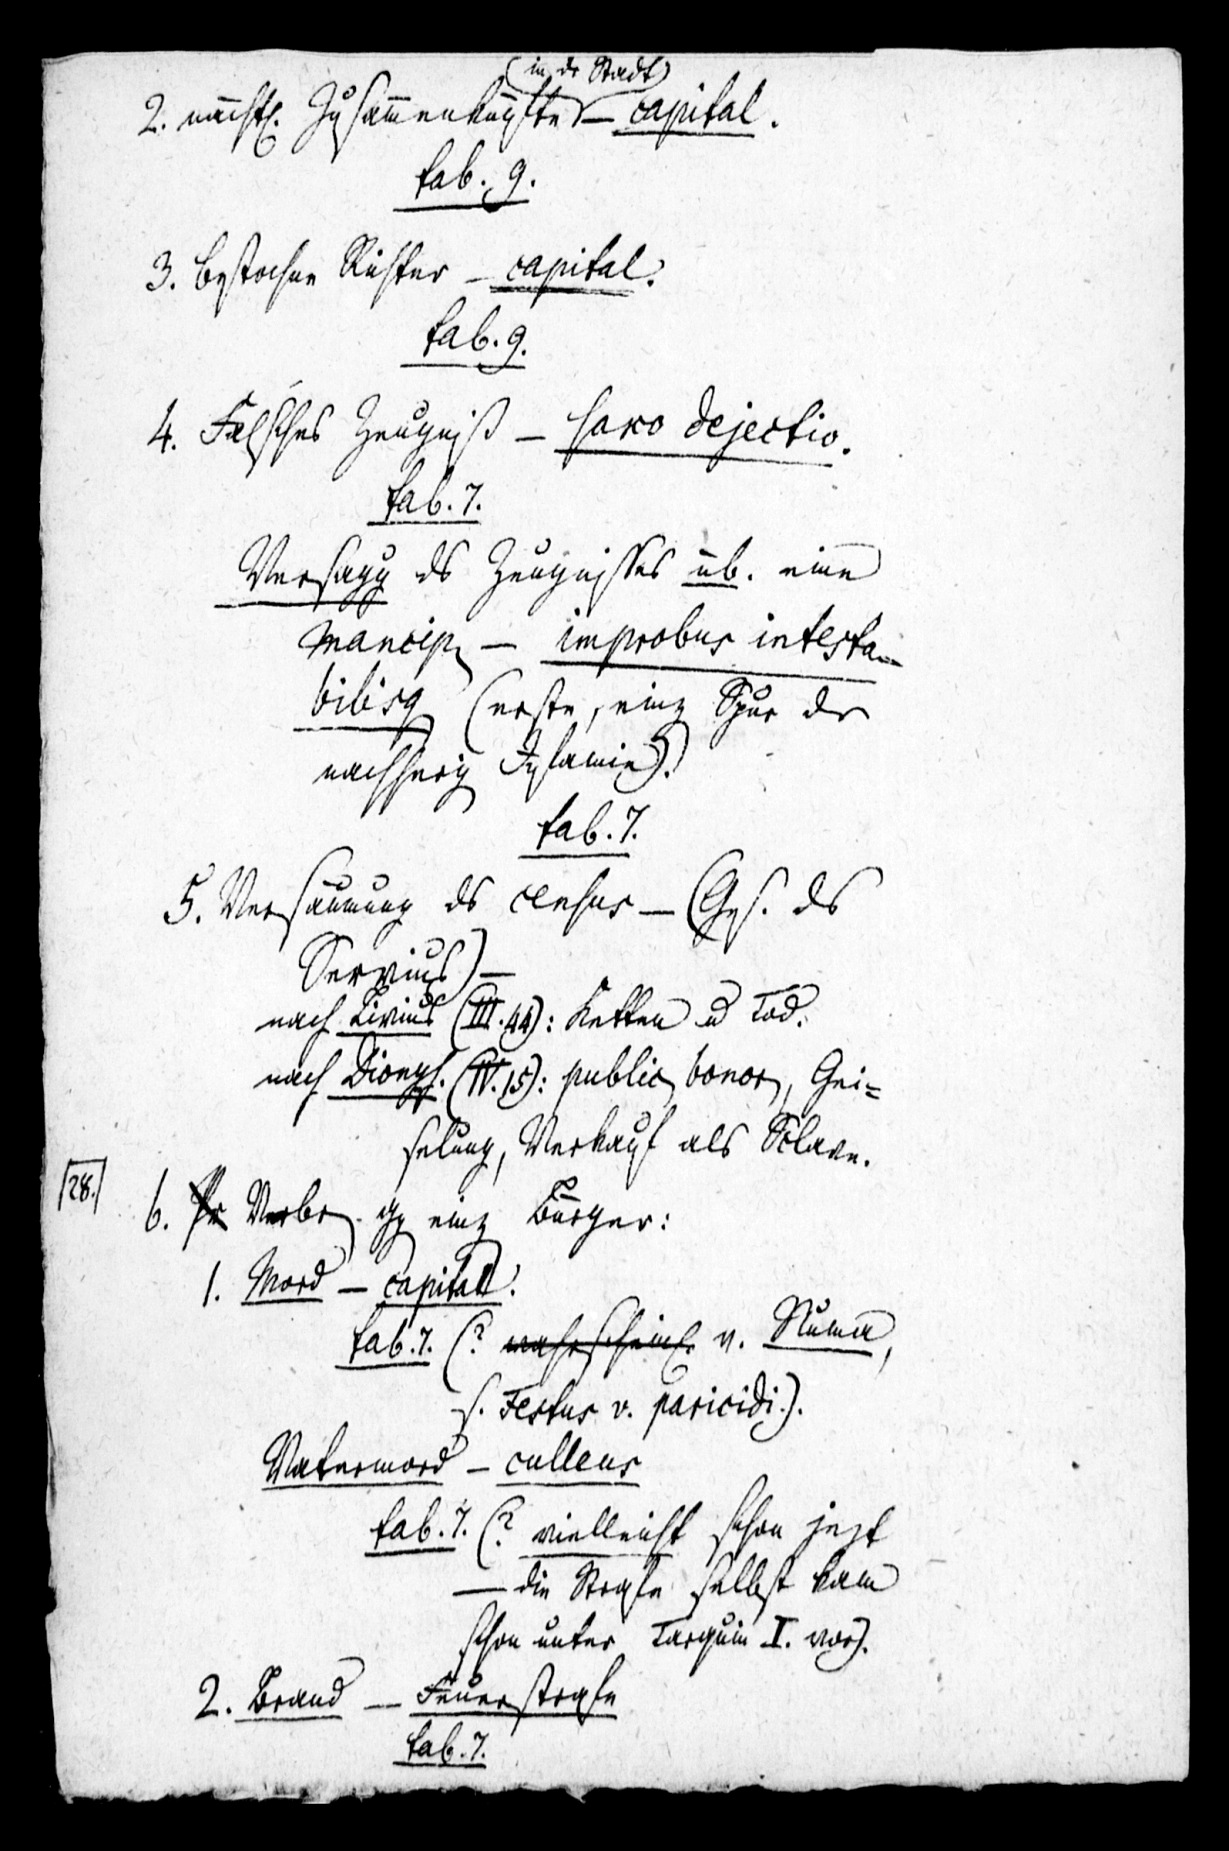 (in dr Stadt)
2. nächtl. Zusammenkünfte — capital.
tab. 9.
3. bestochne Richter — capital.
tab. 9.
4. Falsches Zeugniß — saxo dejectio.
tab. 7.
Versagg ds Zeugnisses üb. eine
mancip. — improbus intesta-
bilisq (erste, einz Spur der
nachherig Infamie).
tab. 7.
5. Versäumung ds census — (Ges. ds
Servius) —
nach Livius (III. 44): Ketten u Tod.
nach Dionys. (IV. 15): public. bonor., Gei=
selung, Verkauf als Sclave.
28.
6. Pr Verbr. gg einz Bürger:
1. Mord — capital.
tab. 7. (? wahrscheinl. v. Numa,
s. Festus v. paricidi.).
Vatermord — culleus
tab. 7. (? vielleicht schon jezt
— die Strafe selbst kam
schon unter Tarquin I. vor).
2. Brand — Feuerstrafe
tab. 7.